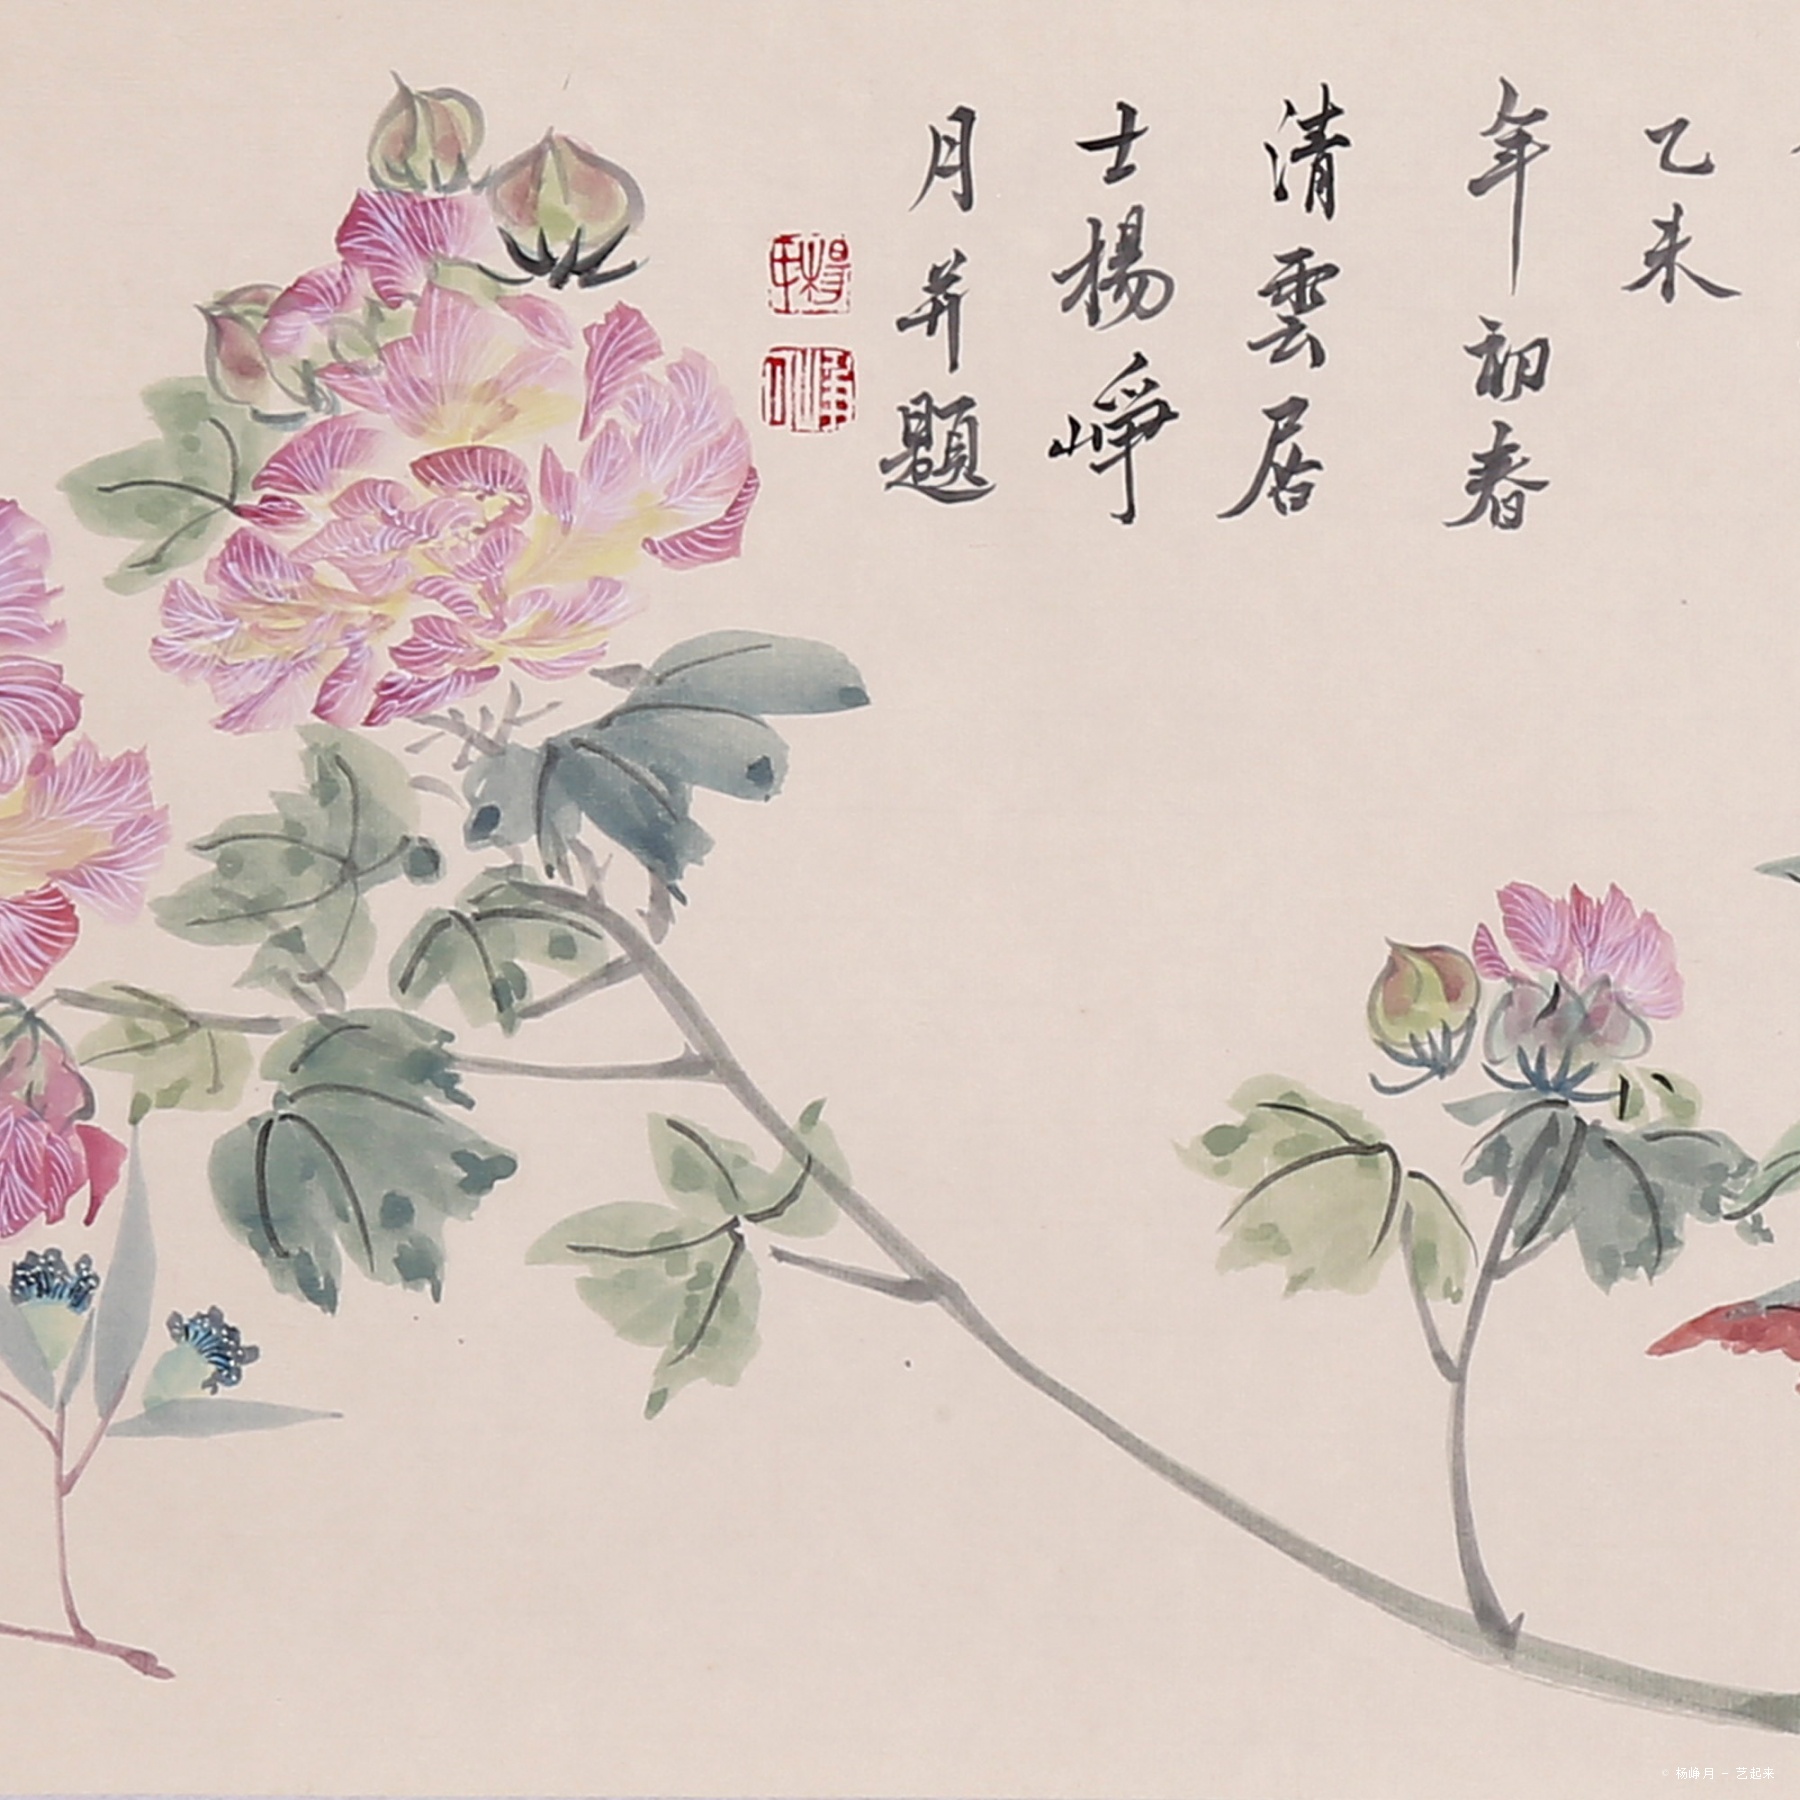 乙未
年初春
清雲居
士楊崢
月并題
© 杨峥月 - 艺起来